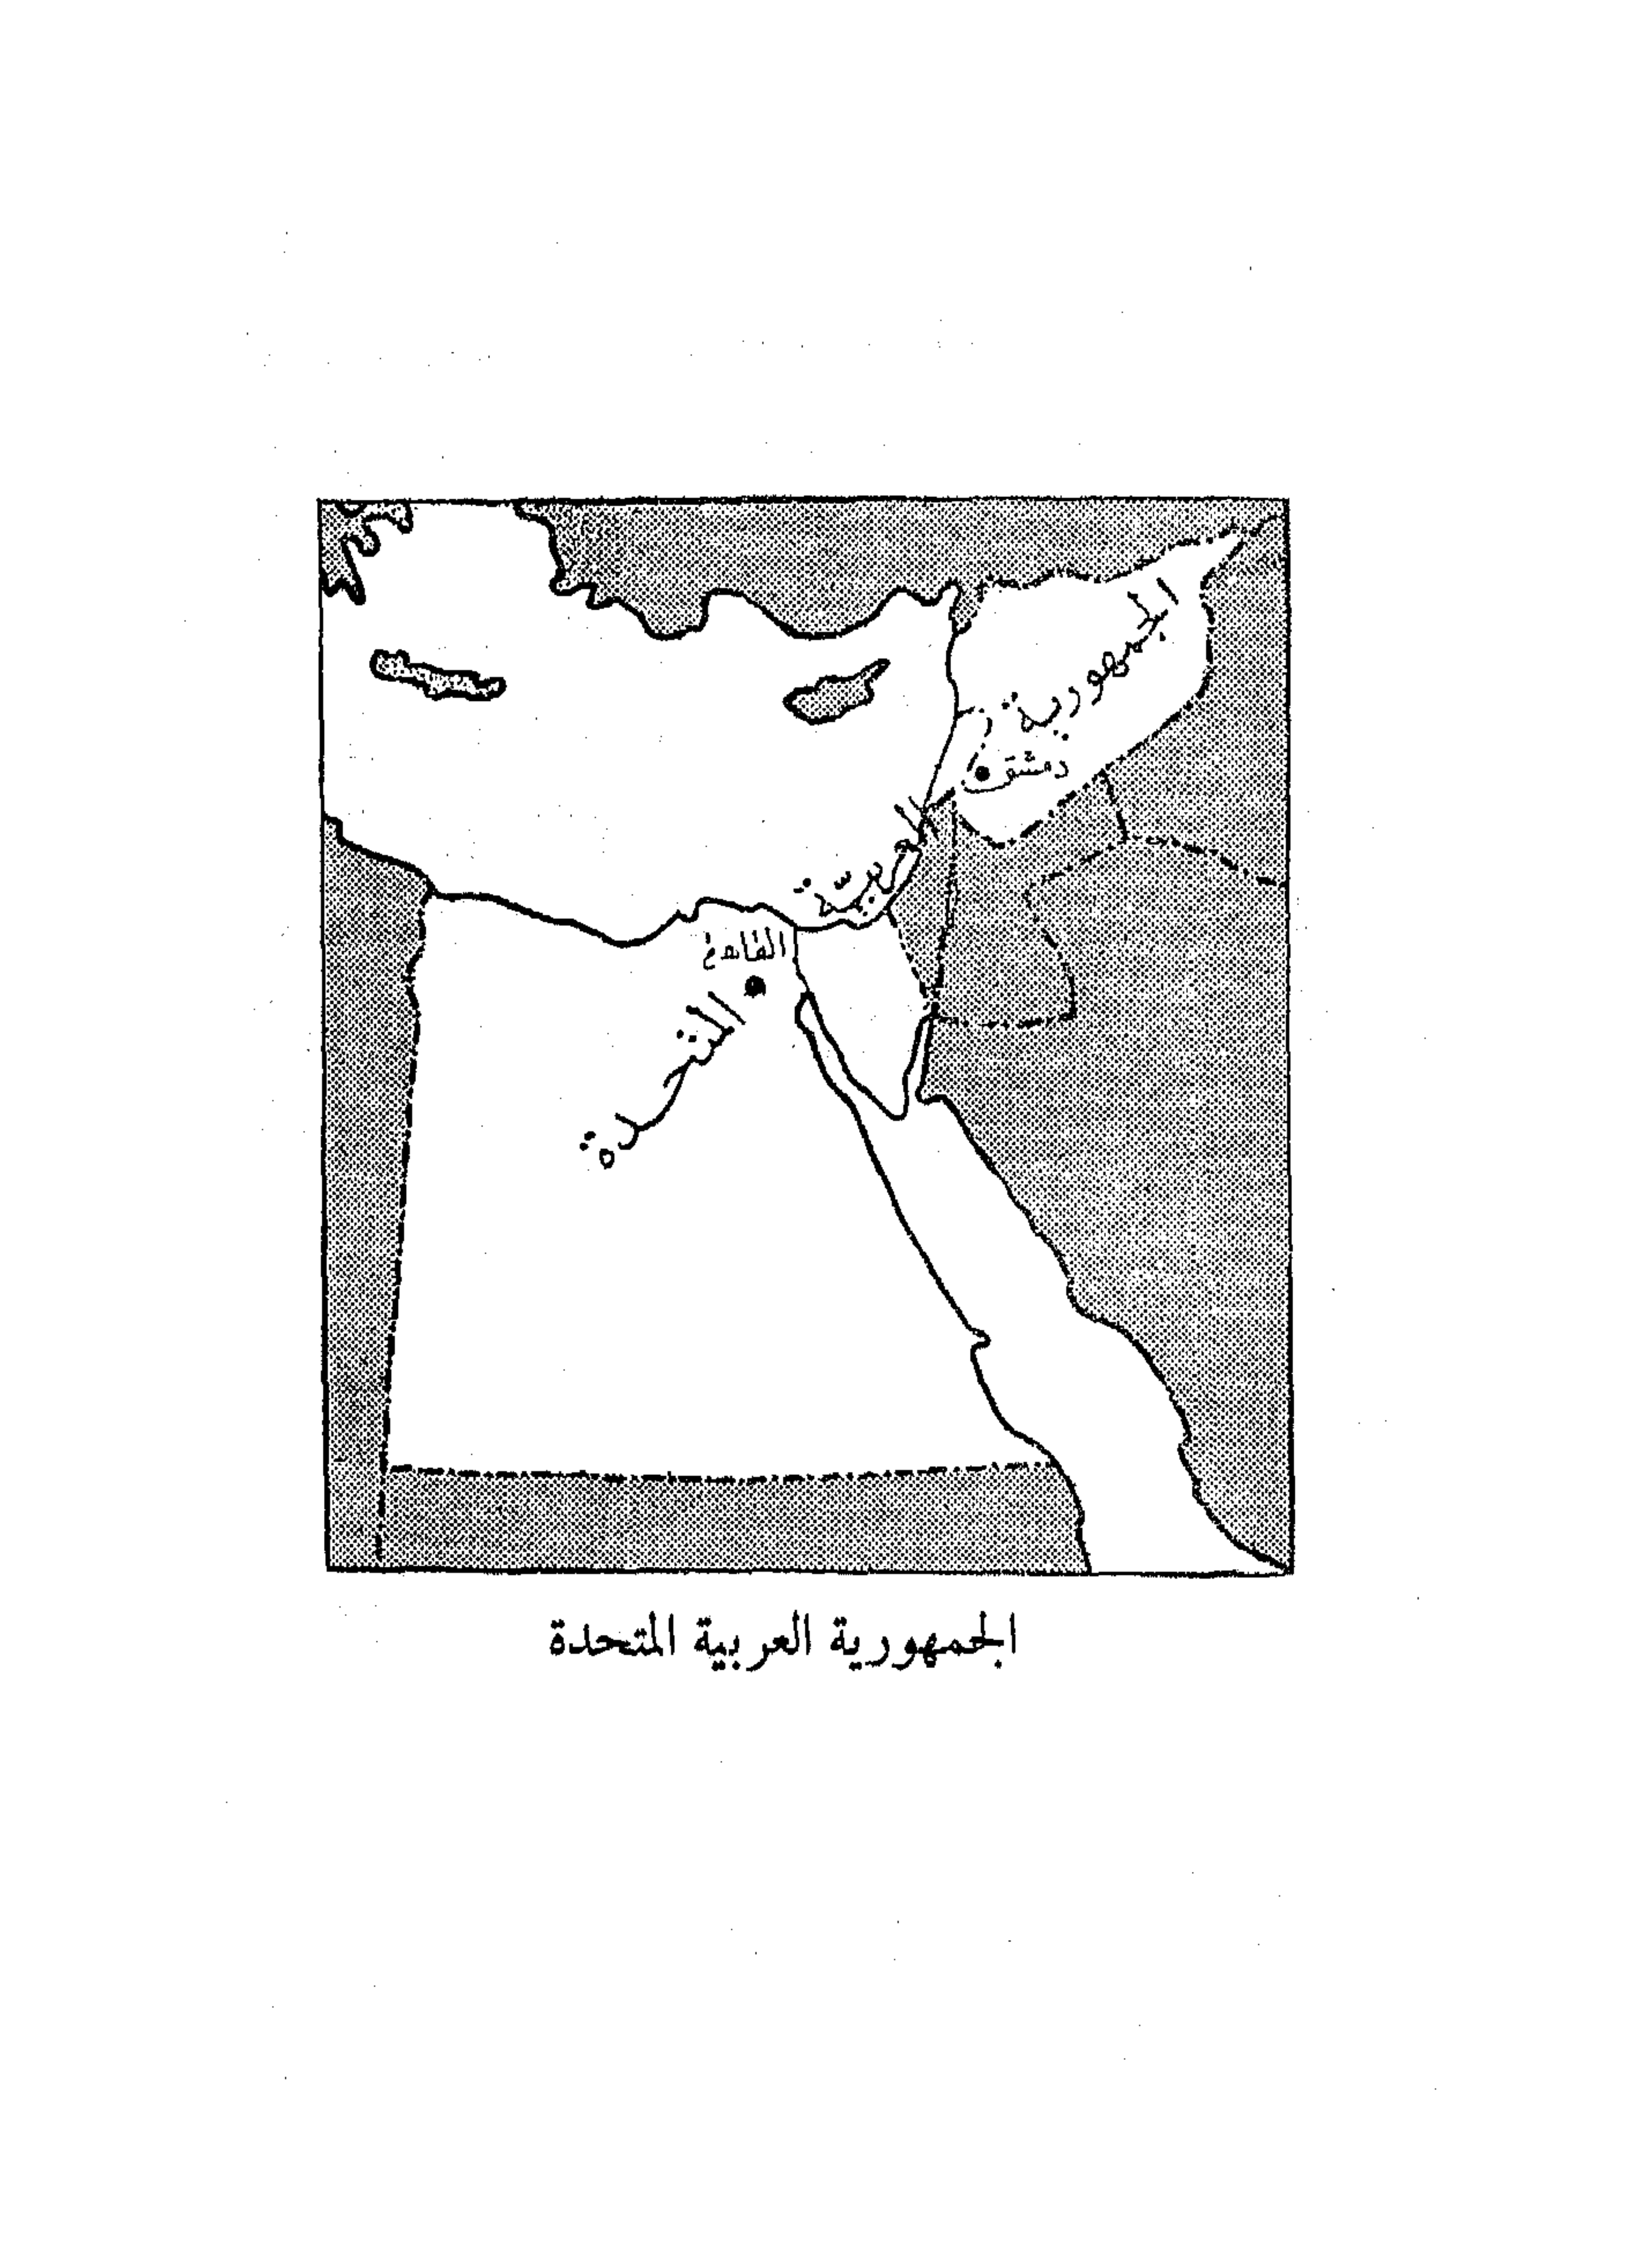 الجمهورية
دمشق
العربيّة
القاهرة
المتحدة
الجمهورية العربية المتحدة